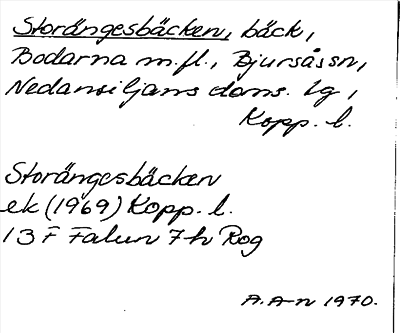 Storängesbäcken, bäck,
Bodarna m.fl., Bjursås sn,
Nedansiljans doms. lg,
Kopp. l.
Storängesbäcken
ek (1969) Kopp. l.
13 F Falun 7h Rog
A.A-n 1970.